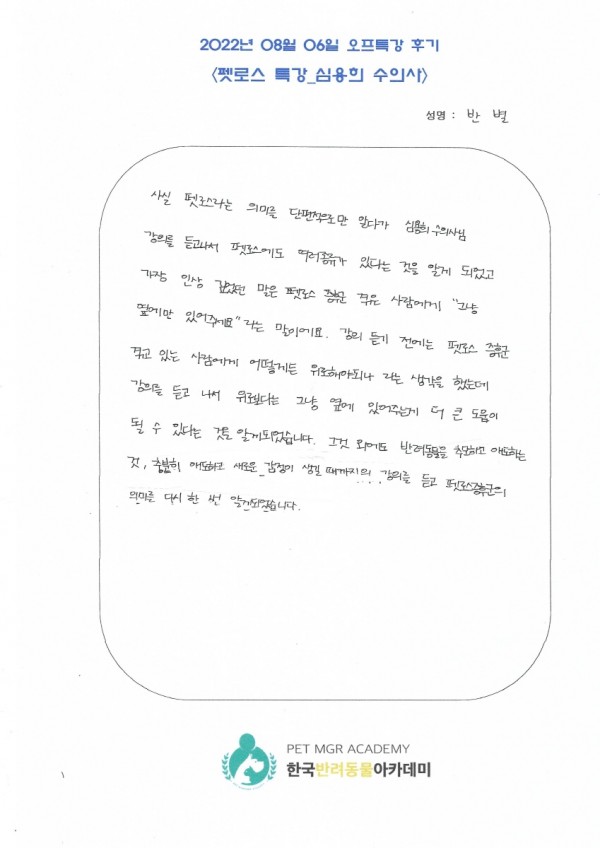 2022년 08월 06일 오프특강 후기
<펫로스 특강_심용희 수의사>
성명 : 반 별
사실 펫로스라는 의미를 단편적으로만 알다가 심용희 수의사님
강의를 듣고나서 펫로스에도 여러종류가 있다는 것을 알게 되었고
가장 인상 깊었던 말은 펫로스 증후군 겪은 사람에게 "그냥
옆에만 있어주세요" 라는 말이에요. 강의 듣기 전에는 펫로스 증후군
겪고 있는 사람에게 어떻게든 위로해야되나 라는 생각을 했는데
강의를 듣고 나서 위로보다는 그냥 옆에 있어주는게 더 큰 도움이
될 수 있다는 것을 알게되었습니다. 그것 외에도 반려동물을 추모하고 애도하는
것, 충분히 애도하고 새로운 감정이 생길 때까지의 강의를 듣고 펫로스증후군의
의미를 다시 한 번 알게되었습니다.
PET MGR ACADEMY
한국반려동물아카데미